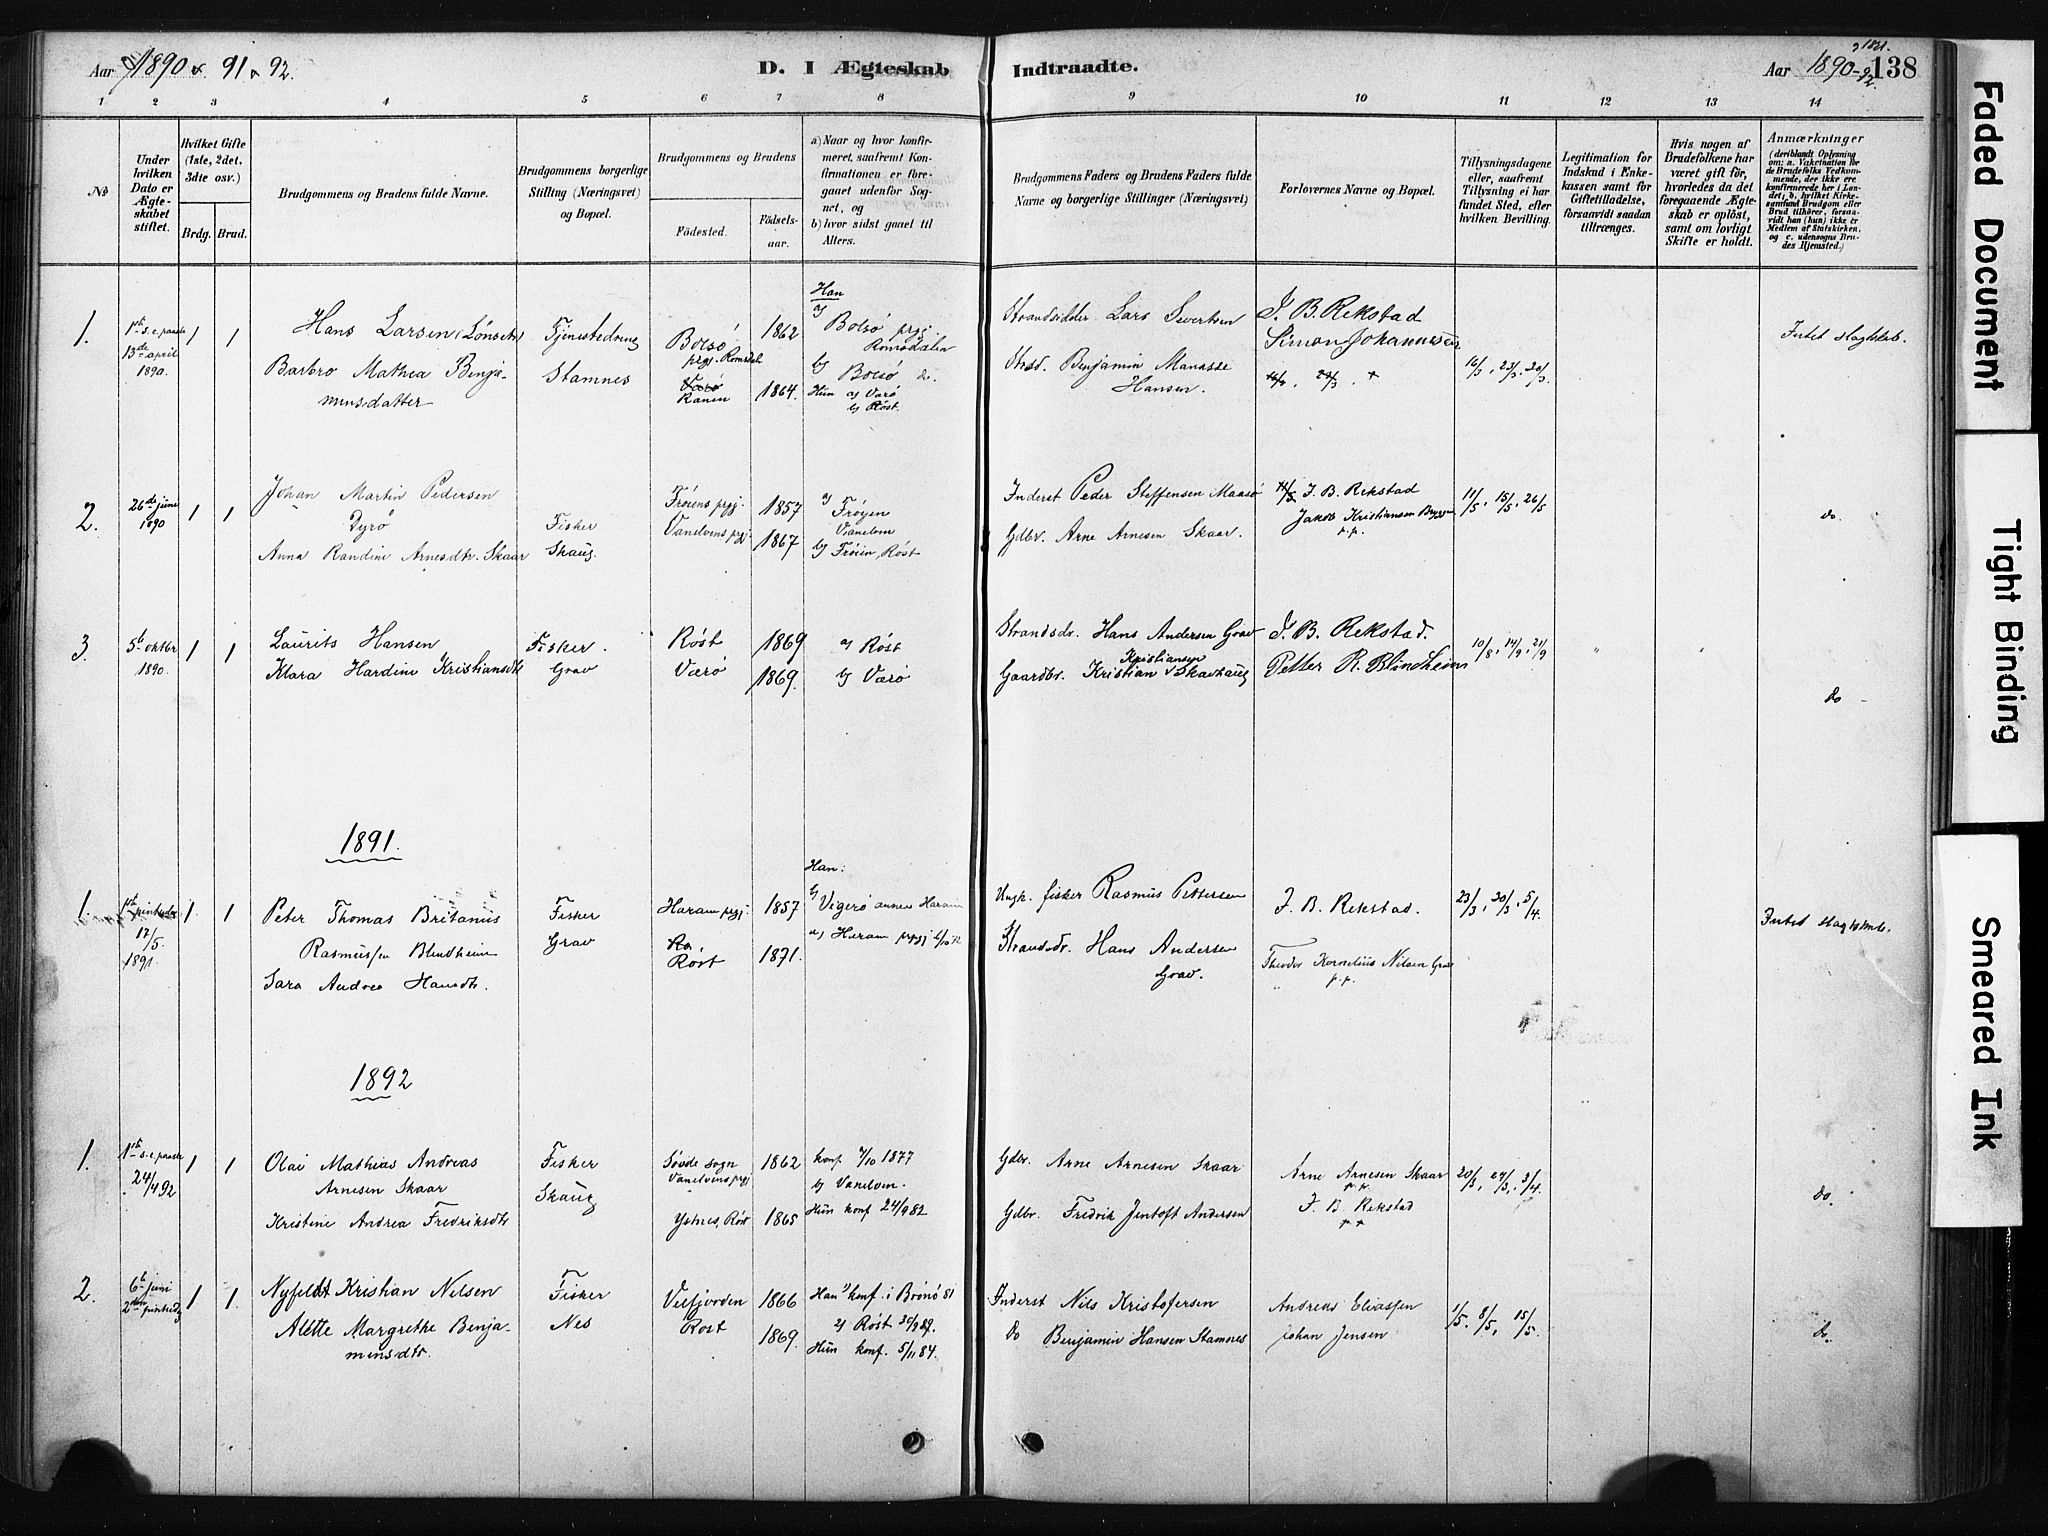 Aar 1890 & 91 & 92.
D. I Ægteskab Indtraadte.
Aar 1890-92 138
1 2 3 4 5 6 7 8 9 10 11 12 13 14
No
Under hvilken Dato er Ægteskabet stiftet.
Hvilket Gifte (1ste, 2det, 3die osv.)
Brdg. Brud.
Brudgommens og Brudens fulde Navne.
Brudgommens borgerlige Stilling (Næringsvei) og Bopæl.
Brudgommens og Brudens
Fødested. Fødselsaar.
a) Naar og hvor konfirmeret, saafremt Konfirmationen er foregaaet udenfor Sognet, og
b) hvor sidst gaaet til Alters.
Brudgommens Faders og Brudens Faders fulde Navne og borgerlige Stillinger (Næringsvei)
Forlovernes Navne og Bopæl.
Tillysningsdagene eller, saafremt Tillysning ei har fundet Sted, efter hvilken Bevilling.
Legitimation for Indskud i Enkekassen samt for Giftetilladelse, forsaavidt saadan tiltrænges.
Hvis nogen af Brudefolkene har været gift før, hvorledes da det foregaaende Ægteskab er opløst, samt om lovligt Skifte er holdt.
Anmærkninger
(deriblandt Oplysning om: a. Vakcination for de Brudefolks Vedkommende, der ikke ere konfirmerede her i Landet, b. hvilket Kirkesamfund Brudgom eller Brud tilhører, forsaavidt han (hun) ikke er Medlem af Statskirken, og c. udensogns Brudes Hjemsted.)
1. 1ste s.e. paaske 13de april 1890. 1 1
Hans Larsen (Lønseth)
Barbro Mathea Benjaminsdatter
Tjenestedreng
Stamnes
Bolsø prgj. Romsdal 1862
Værø Ranen 1864.
Han
a) Bolsø prgj. Romsdalen
b) Bolsø do.
Hun a) Værø
b) Røst.
Strandsidder Lars Sivertsen
Strsd. Benjamin Manasse Hansen.
J. B. Rekstad
Simon Johannessen
16/3, 23/3, 30/3
Intet slagtskab.
2. 26de juni 1890 1 1
Johan Martin Pedersen
Dyrø
Anna Randine Arnesdtr. Skaar
Fisker
Skaug.
Frøiens prgj. 1857
Vanelvens prgj 1867
a) Frøyen
Vanelven
b) Frøien, Røst
Inderst Peder Steffensen Maasø
Gdbr. Arne Arnesen Skaar.
J. B. Rekstad
Jakob Kristiansen
p.p.
11/5, 15/5, 26/5
do.
3. 5te oktbr 1890. 1 1
Laurits Hansen
Klara Hardine Kristiansdtr
Fisker.
Grav
Røst 1869
Værø 1869.
a) Røst
b) Værø
Strandsdr. Hans Andersen Grav
Gaardbr. Kristian Kristiansen Skarhaug
J. B. Rekstad.
Petter R. Blindheim
10/8, 14/9, 21/9
" "
do -
1891.
1. 1ste pintsedag 17/5. 1891. 1 1
Peter Thomas Britanius
Rasmussen Blindheim
Sara Andrea Hansdtr.
Fisker
Grav
Haram prgj 1857
Røst 1871.
Han:
b) Vigerø annex Haram
a) Haram prgj
Ungk. fisker Rasmus Pettersen
Strandsdr. Hans Andersen
Grav.
J. B. Rekstad.
Theodor Kornelius Nilsen Grav
p.p.
23/3, 30/3, 5/4.
Intet slagtskab.
1892
1. 1ste s.e. paaske 24/4 92 1 1
Olai Mathias Andreas
Arnesen Skaar
Kristine Andrea Fredriksdtr
Fisker
Skaug
Søvde sogn Vanelvens prgj 1862
Ystnes, Røst 1865
konf 7/10 1877
b) Vanelven.
Hun konf 24/9 82
Gdbr. Arne Arnesen Skaar
Gdbr. Fredrik Jentoft Andersen
Arne Arnesen Skaar
p.p.
J. B. Rekstad
20/3, 27/3, 3/4.
do.
2. 6te juni 2den pintsedg 1 1.
Nyfeldt Kristian Nilsen
Alette Margrethe Benjaminsdtr.
Fisker
Nes
Vefjorden 1866
Rost 1869.
Han konf. i Brønø 81
a) Røst
Hun konf. 5/11 84.
Inderst Nils Kristofersen
do Benjamin Hansen Stamnes
Andreas Eliassen
Johan Jensen
1/5. 8/5, 15/5.
do.
Faded Document
Tight Binding
Smeared Ink